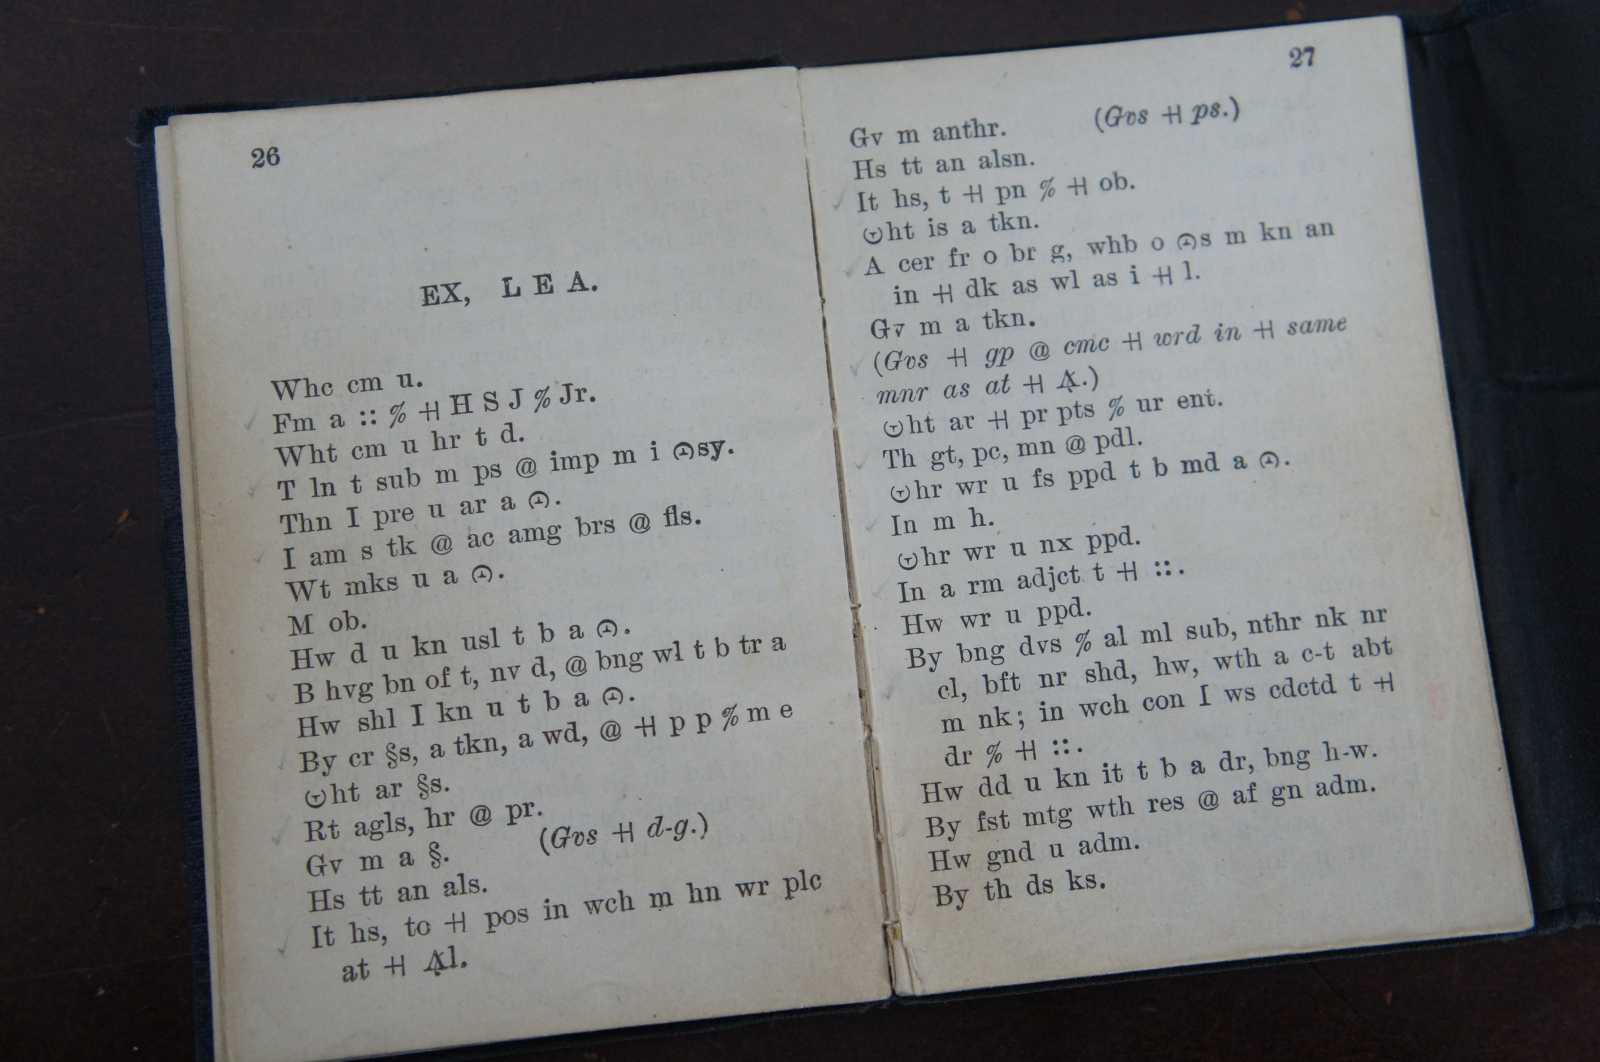 26
EX, L E A.
Whc cm u.
Fm a :: % ┤┤ H S J % Jr.
Wht cm u hr t d.
T ln t sub m ps @ imp m i sy.
Thn I pre u ar a .
I am s tk @ ac amg brs @ fls.
Wt mks u a .
M ob.
Hw d u kn usl t b a .
B hvg bn of t, nv d, @ bng wl t b tr a
Hw shl I kn u t b a .
By cr §s, a tkn, a wd, @ ┤┤ p p % m e
ht ar §s.
Rt agls, hr @ pr.
Gv m a §. (Gvs ┤┤ d-g.)
Hs tt an als.
It hs, to ┤┤ pos in wch m hn wr plc
at ┤┤ l.
27
Gv m anthr. (Gvs ┤┤ ps.)
Hs tt an alsn.
It hs, t ┤┤ pn % ┤┤ ob.
ht is a tkn.
A cer fr o br g, whb o s m kn an
in ┤┤ dk as wl as i ┤┤ l.
Gv m a tkn.
(Gvs ┤┤ gp @ cmc ┤┤ wrd in ┤┤ same
mnr as at ┤┤ .)
ht ar ┤┤ pr pts % ur ent.
Th gt, pc, mn @ pdl.
hr wr u fs ppd t b md a .
In m h.
hr wr u nx ppd.
In a rm adjct t ┤┤ ::.
Hw wr u ppd.
By bng dvs % al ml sub, nthr nk nr
cl, bft nr shd, hw, wth a c-t abt
m nk; in wch con I ws cdctd t ┤┤
dr % ┤┤ ::.
Hw dd u kn it t b a dr, bng h-w.
By fst mtg wth res @ af gn adm.
Hw gnd u adm.
By th ds ks.